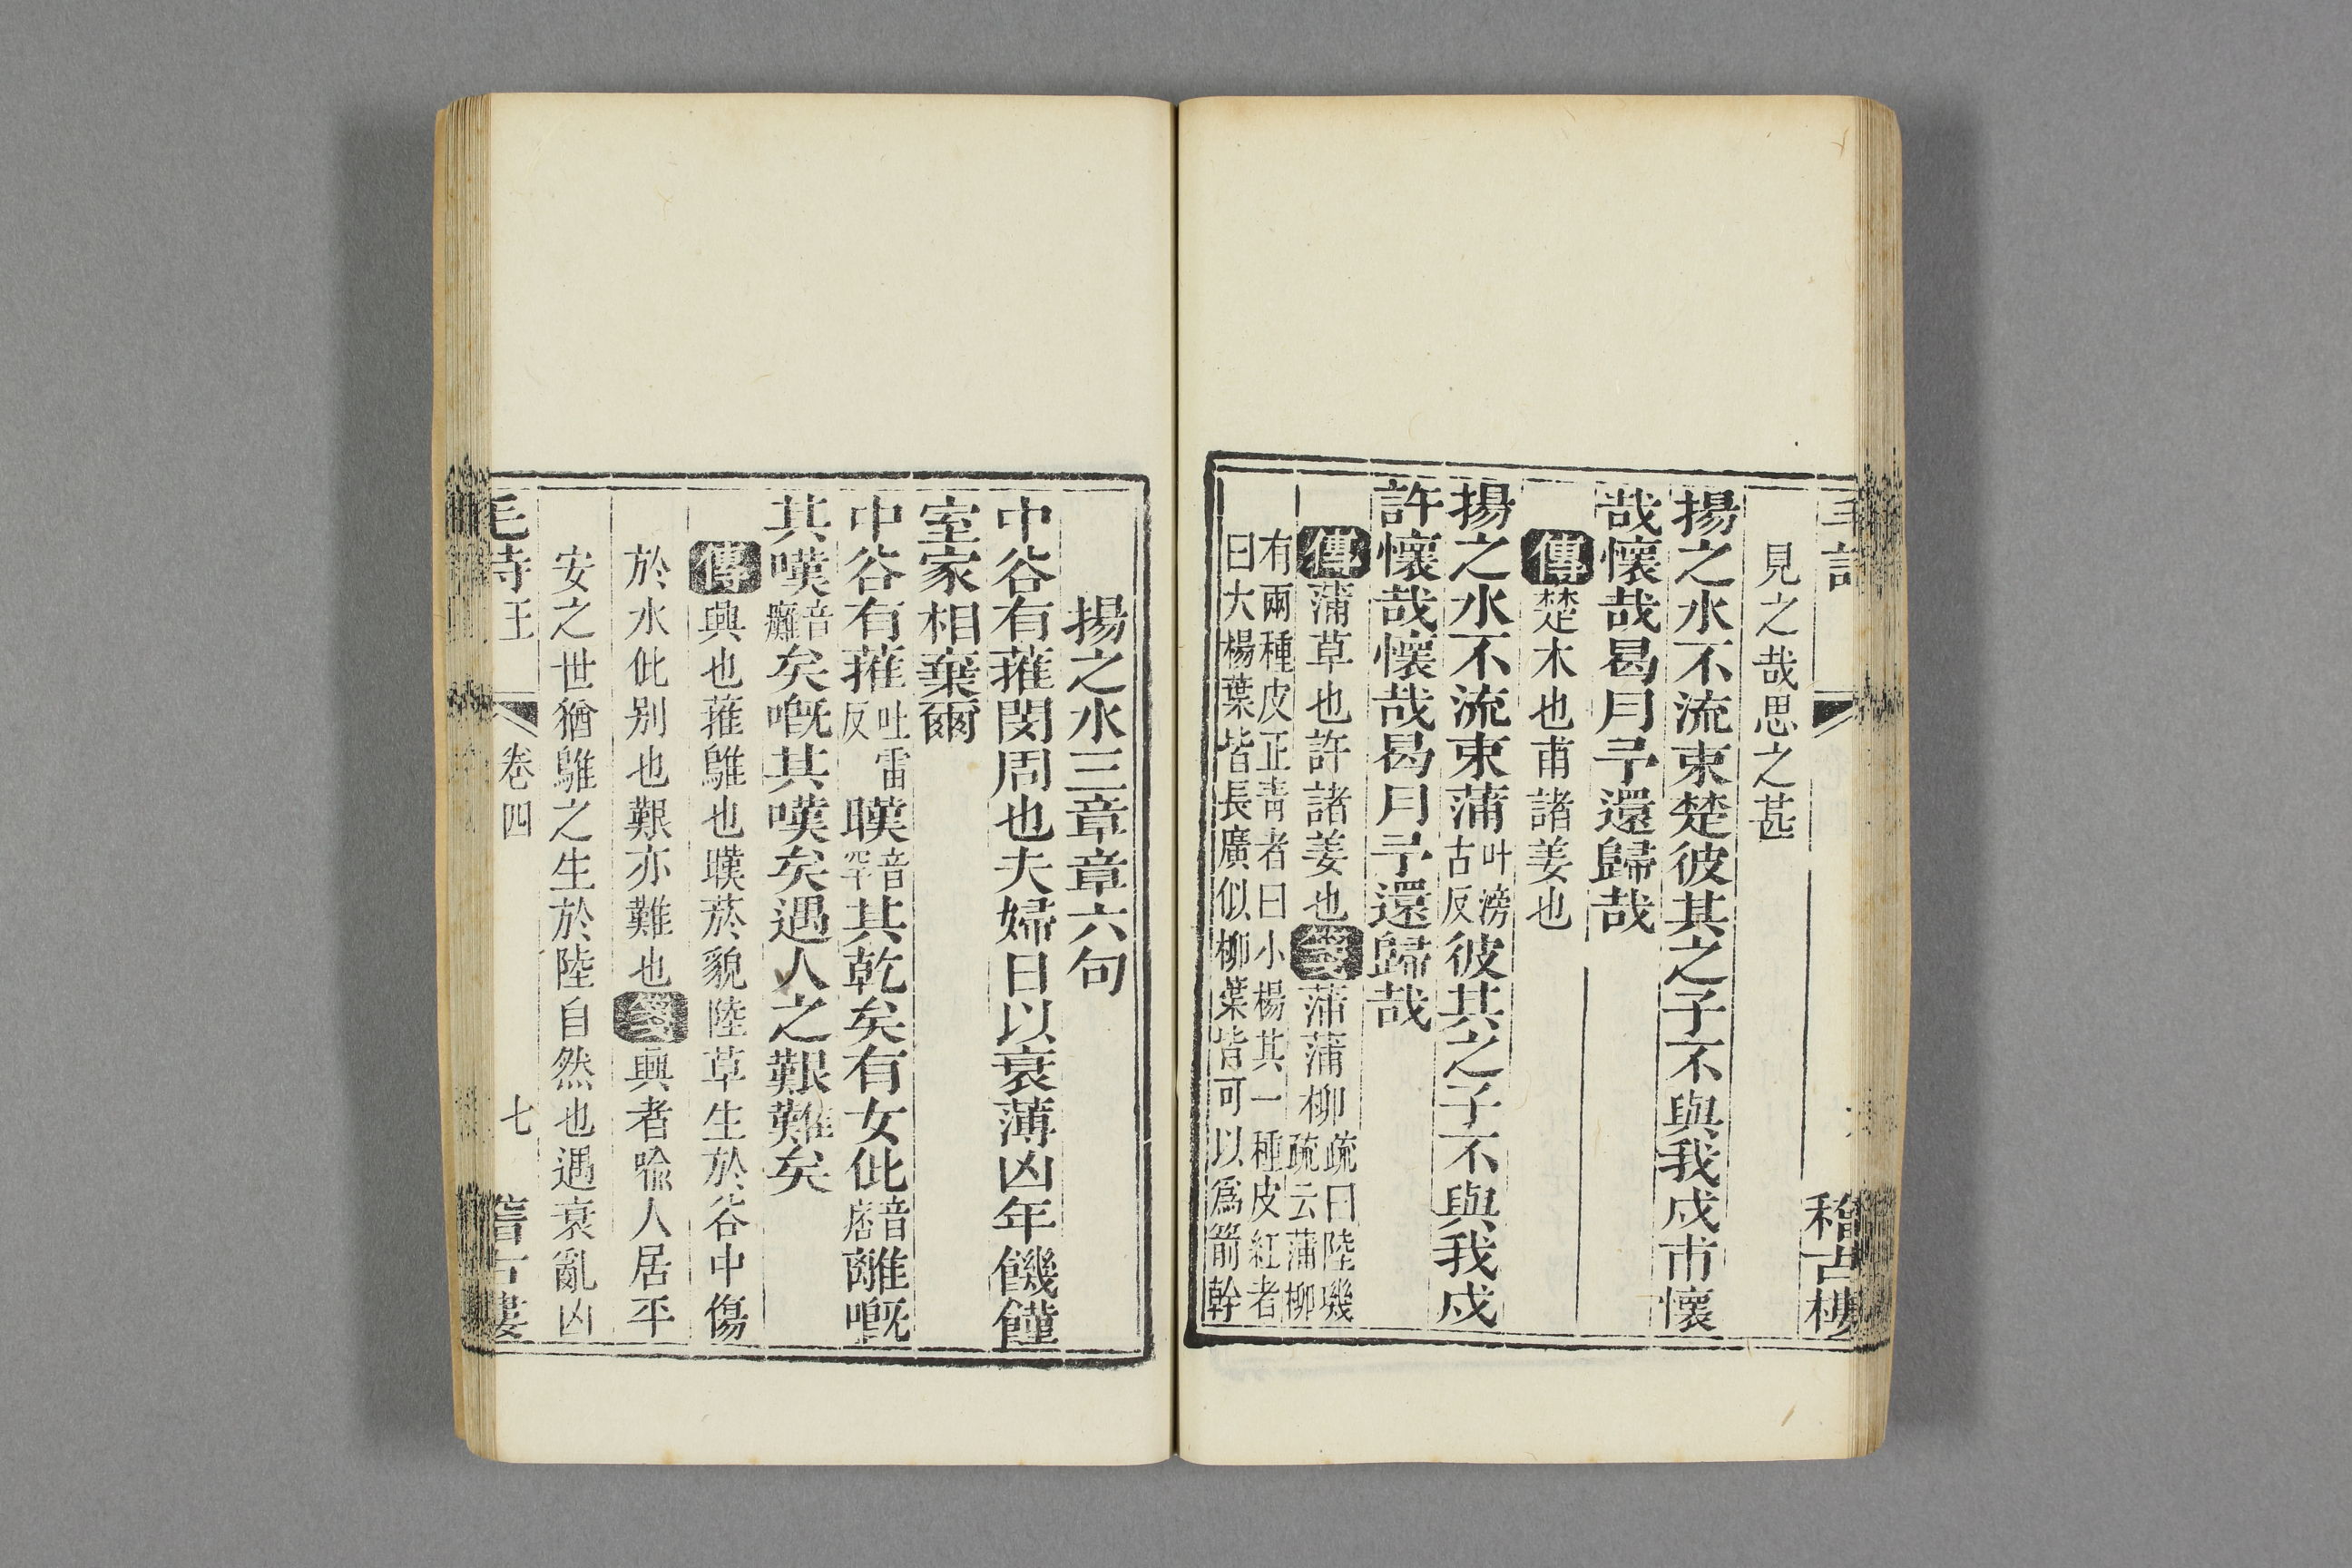 毛詩
稽古樓
見之哉思之甚
揚之水不流束楚彼其之子不與我戍甫懷
哉懷哉曷月予還歸哉
傳楚木也甫諸姜也
揚之水不流束蒲叶滂古反彼其之子不與我戍
許懷哉懷哉曷月予還歸哉
傳蒲草也許諸姜也箋蒲蒲柳疏曰陸璣疏云蒲柳
有兩種皮正青者曰小楊其一種皮紅者
曰大楊葉皆長廣似柳葉皆可以爲箭幹
揚之水三章章六句
中谷有蓷閔周也夫婦日以衰薄凶年饑饉
室家相棄爾
中谷有蓷吐雷反暵音罕其乾矣有女仳音痞離嘅
其嘆音灘矣嘅其嘆矣遇人之艱難矣
傳興也蓷鵻也暵菸貌陸草生於谷中傷
於水仳别也艱亦難也箋興者喩人居平
安之世猶鵻之生於陸自然也遇衰亂凶
毛詩王 卷四 七 稽古樓